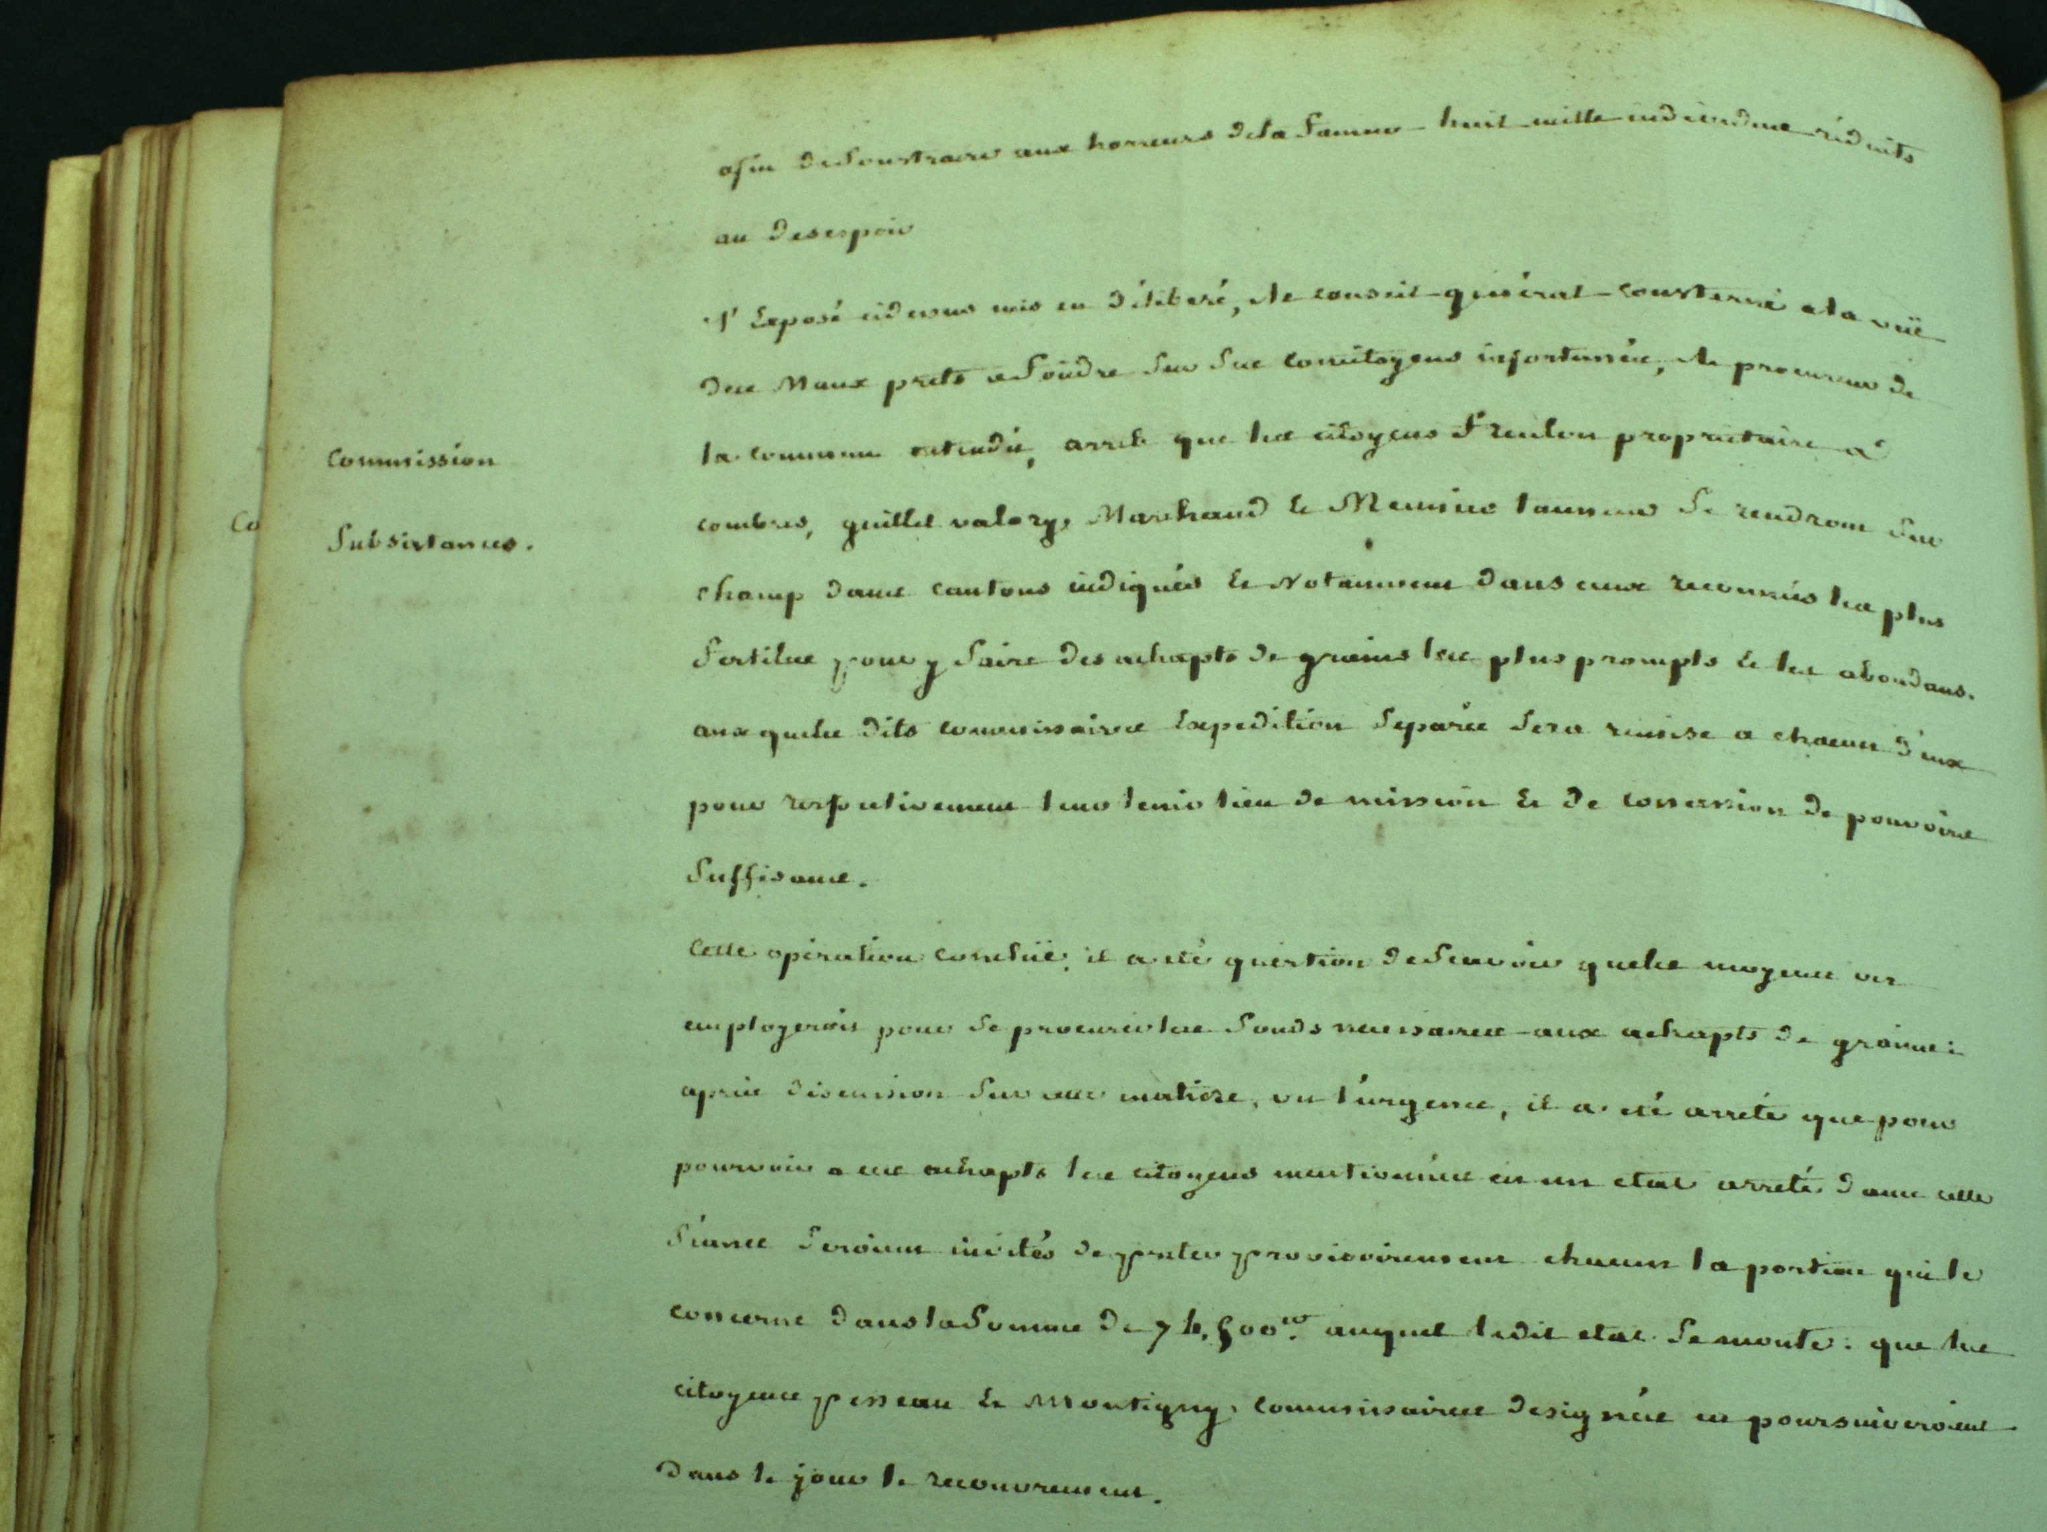 afin de soustraire aux horreurs de la famine huit mille individus réduits
au desespoir
L'Exposé cidessus mis en déliberé, le conseil général consterné a la vuë
des Maux prets a fondre sur ses concitoyens infortunés, le procureur de
la commune entendu, arrete que les citoyens Freulon proprietaire a
combres, guillet valery, Marchand et Meunier tanneur se rendront sur
champ dans cantons indiqués et Notamment dans ceux reconnus les plus
fertiles pour y faire des achapts de grains les plus prompts et les abondans.
aux quels dits commissaires Expedition separée sera remise a chacun d'eux
pour respectivement leur tenir lieu de mission et de concession de pouvoirs
suffisans.
Commission
Subsistances.
Co
Cette opération concluë, il a été question de scavoir quels moyens on
employeroit pour se procurer les fonds necessaires aux achapts de grains:
après discussion sur cette matiere, vu l'urgence, il a été arrêté que pour
pourvoir a ces achapts les citoyens mentionnés en un etat arrêté dans cette
séance seroient invités de preter provisoirement chacun la portion qui le
concerne dans la somme de 500 auquel ledit etat se monte: que les
citoyens pesseau et Montigny, commissaires designés en poursuiveroient
dans le jour le recouvrement.